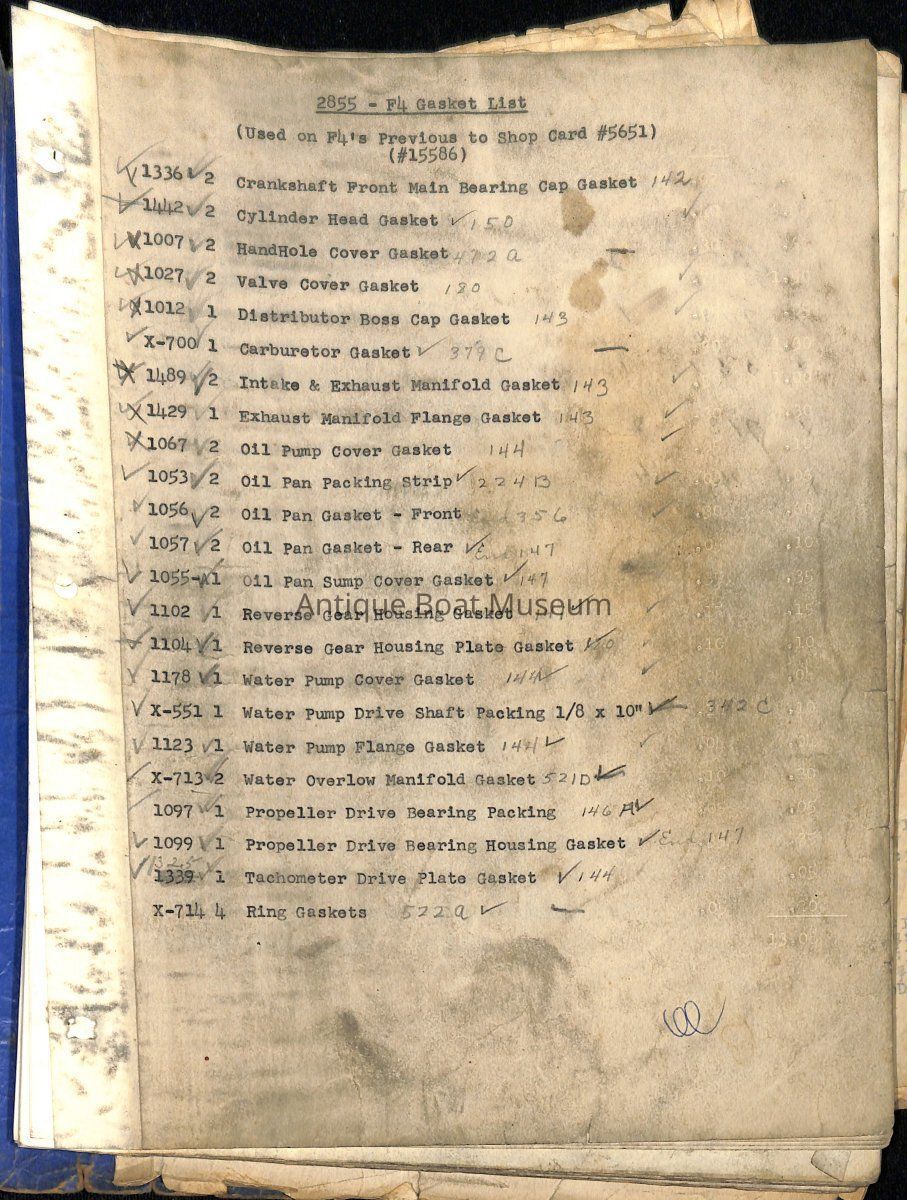 2855 - F4 Gasket List
(Used on F4's Previous to Shop Card #5651)
(#15586)
1336 2 Crankshaft Front Main Bearing Cap Gasket 142
1442 2 Cylinder Head Gasket 150
1007 2 HandHole Cover Gasket 472a
1027 2 Valve Cover Gasket 180
1012 1 Distributor Boss Cap Gasket 143
X-700 1 Carburetor Gasket 379C
1489 2 Intake & Exhaust Manifold Gasket 143
1429 1 Exhaust Manifold Flange Gasket 143
1067 2 Oil Pump Cover Gasket 144
1053 2 Oil Pan Packing Strip 224B
1056 2 Oil Pan Gasket - Front 356
1057 2 Oil Pan Gasket - Rear End 147
1055-A 1 Oil Pan Sump Cover Gasket 147
Antique Boat Museum
1102 1 Reverse Gear Housing Gasket
1104 1 Reverse Gear Housing Plate Gasket
1178 1 Water Pump Cover Gasket 144
X-551 1 Water Pump Drive Shaft Packing 1/8 x 10" 342C
1123 1 Water Pump Flange Gasket 144
X-713 2 Water Overlow Manifold Gasket 521D
1097 1 Propeller Drive Bearing Packing 146A
1099 1 Propeller Drive Bearing Housing Gasket End 147
1325
1339 1 Tachometer Drive Plate Gasket 144
X-714 4 Ring Gaskets 522a